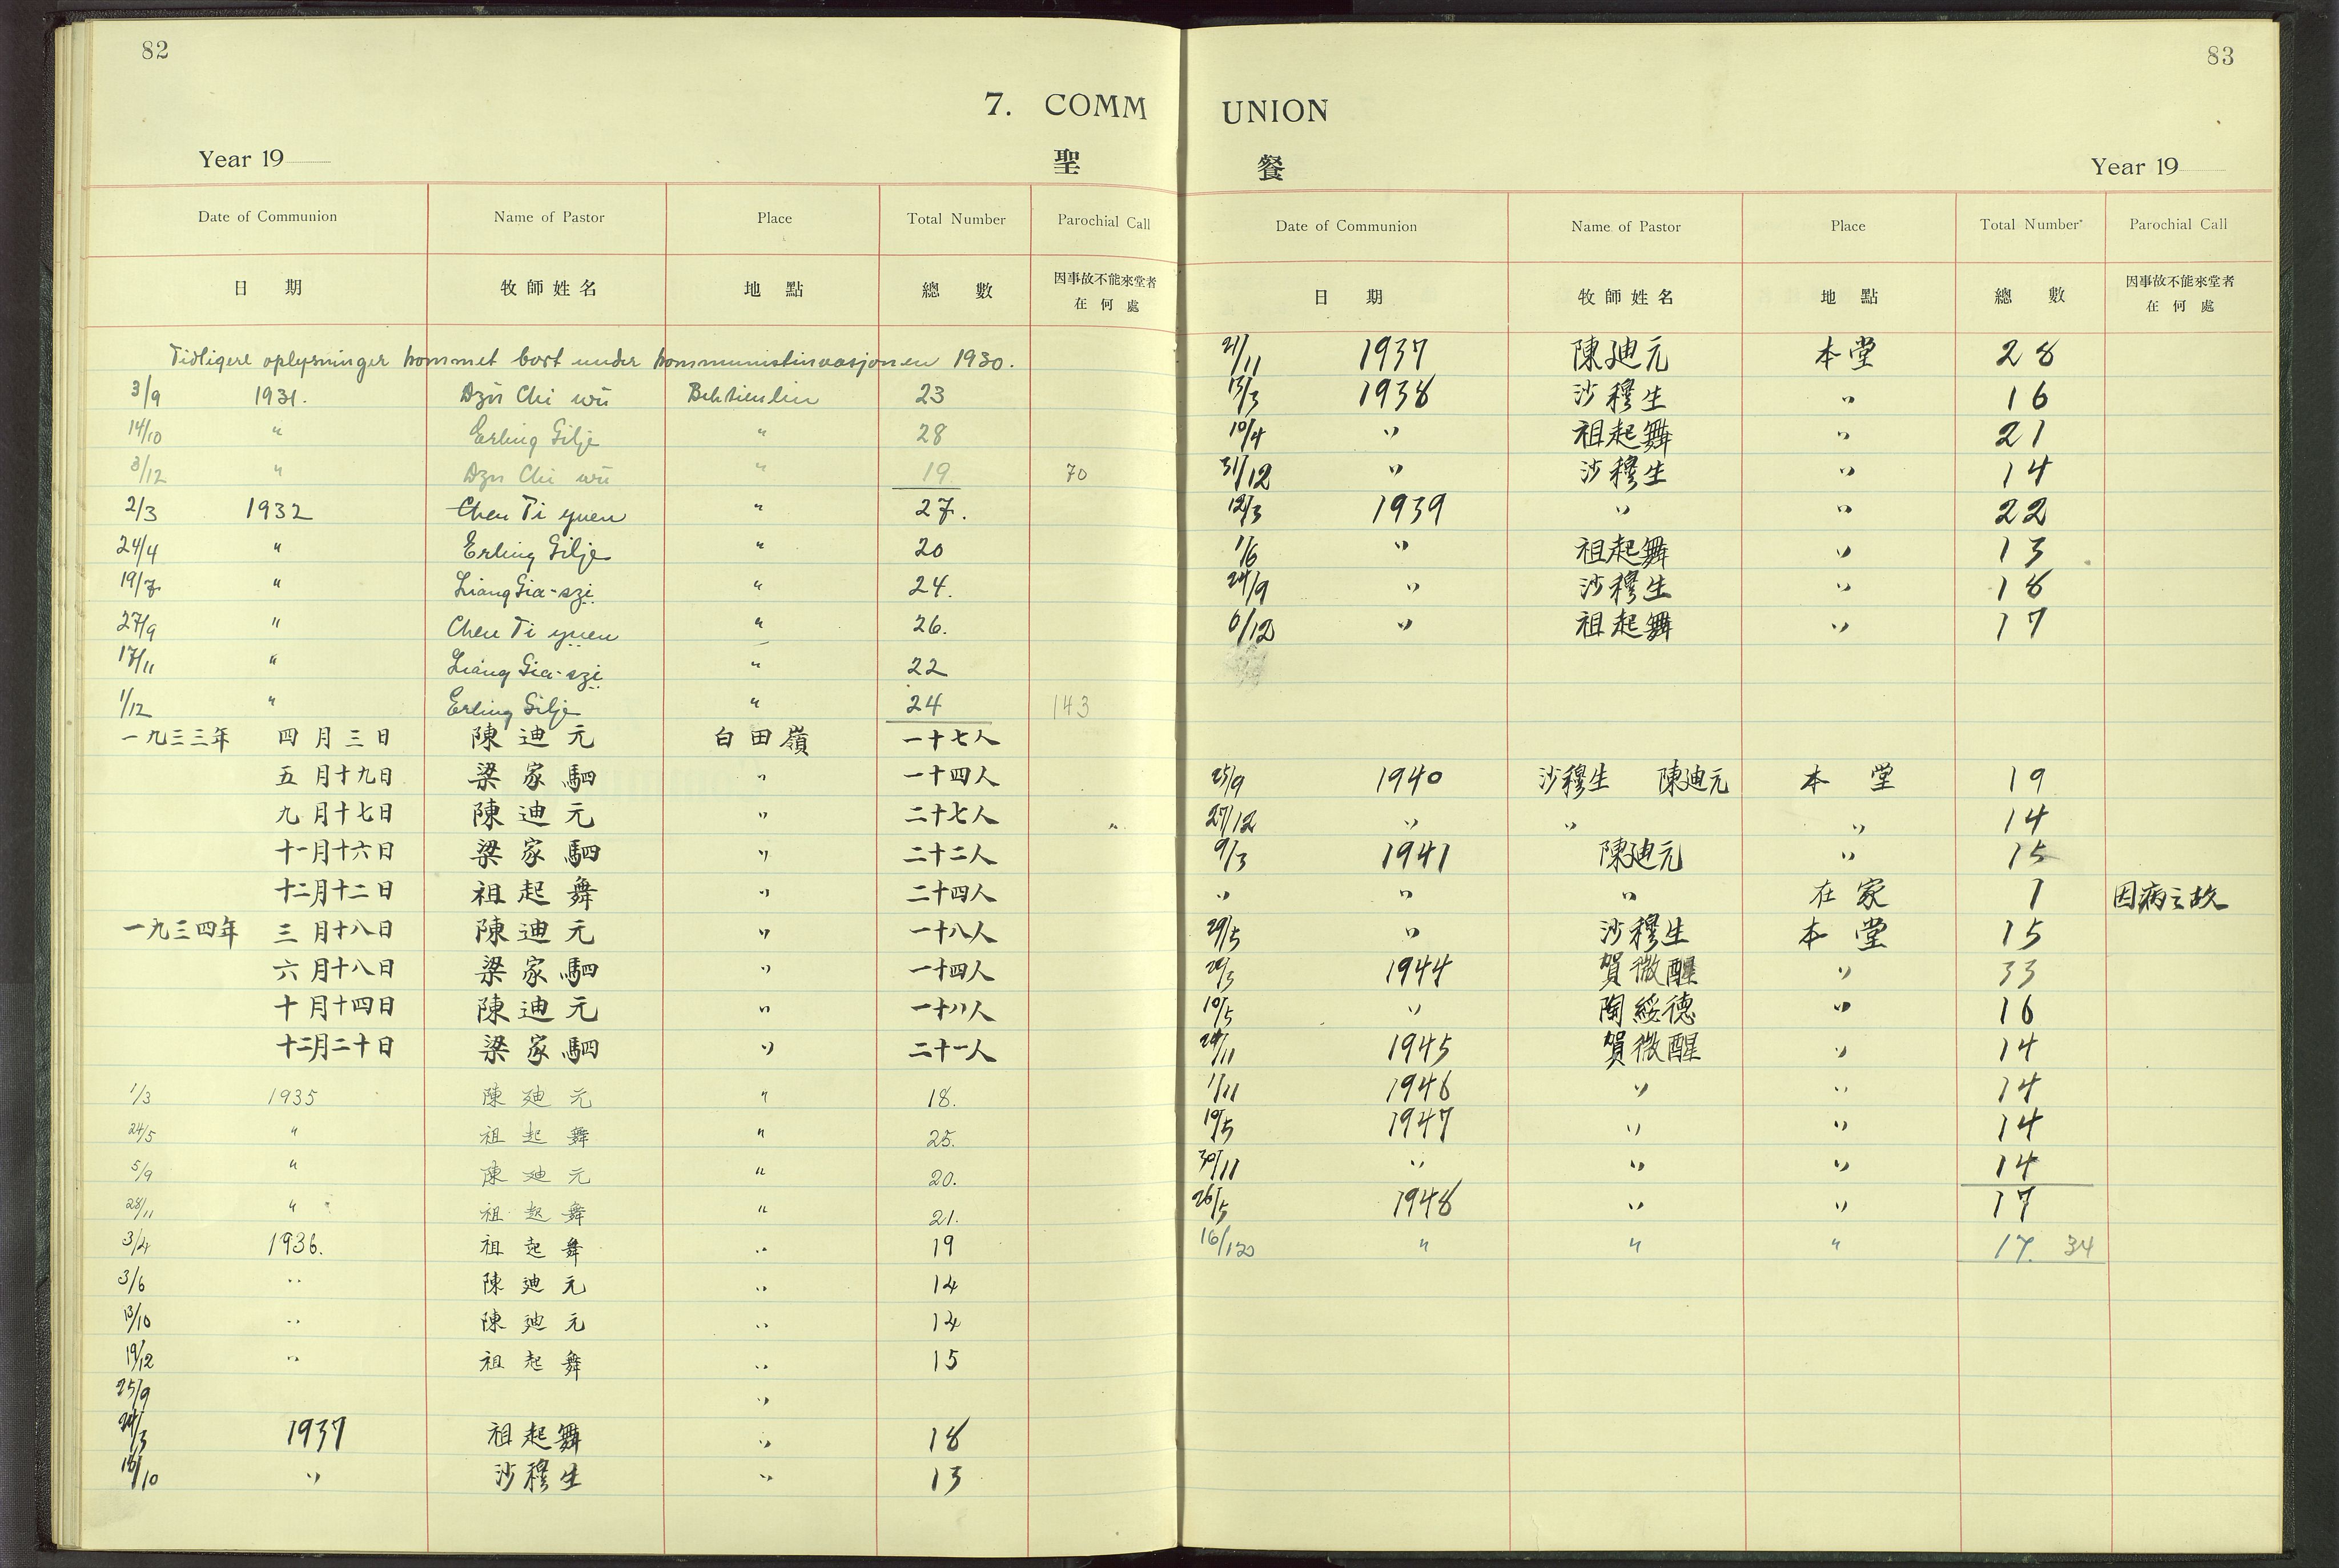 82
7. COMM
Year 19
聖
Date of Communion Name of Pastor Place Total Number Parochial Call
日 期 牧師姓名 地 點 總 數 因事故不能來堂者
在 何 處
Tidligere oplysninger kommet bort under kommunistinvasjonen 1930.
3/9 1931. Dzu Chi wu Behtienlin 23
14/10 " Erling Gilje " 28
3/12 " Dzu Chi wu " 19 70
2/3 1932 Chen Ti yuen " 27.
24/4 " Erling Gilje " 20
19/7 " Liang Gia-szi " 24.
27/9 " Chen Ti yuen " 26.
17/11 " Liang Gia-szi " 22
1/12 " Erling Gilje " 24 143
一九三三年 四月三日 陳迪元 白田嶺 一十七人
五月十九日 梁家駟 " 一十四人
九月十七日 陳迪元 " 二十七人
十一月十六日 梁家駟 " 二十二人
十二月十二日 祖起舞 " 二十四人
一九三四年 三月十八日 陳迪元 " 一十八人
六月十八日 梁家駟 " 一十四人
十月十四日 陳迪元 " 一十八人
十二月二十日 梁家駟 " 二十一人
1/3 1935 陳廸元 " 18.
24/5 " 祖起舞 " 25.
5/9 " 陳廸元 " 20.
28/11 " 祖起舞 " 21.
3/4 1936. 祖起舞 " 19
3/6 " 陳廸元 " 14
13/10 " 陳廸元 " 14
19/12 " 祖起舞 " 15
25/9 "
24/3 1937 祖起舞 " 18
/10 " 沙穆生 " 13
83
UNION
餐 Year 19
Date of Communion Name of Pastor Place Total Number Parochial Call
日 期 牧師姓名 地 點 總 數 因事故不能來堂者
在 何 處
21/11 1937 陳廸元 本堂 28
13/3 1938 沙穆生 " 16
10/4 " 祖起舞 " 21
31/12 " 沙穆生 " 14
12/3 1939 " " 22
1/6 " 祖起舞 " 13
24/9 " 沙穆生 " 18
6/12 " 祖起舞 " 17
25/9 1940 沙穆生 陳廸元 本堂 19
27/12 " " " 14
9/3 1941 陳廸元 " 15
" " " 在家 1 因病之故
29/5 " 沙穆生 本堂 15
/3 1944 賀微醒 " 33
10/5 " 陶綏德 " 16
/11 1945 賀微醒 " 14
1/11 1946 " " 14
19/5 1947 " " 14
30/11 " " " 14
26/5 1948 " " 17
16/ " " " 17. 34